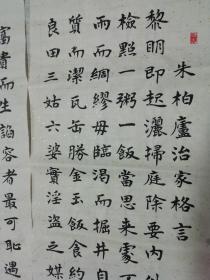 朱柏廬治家格言
黎明即起灑掃庭除要内外
檢點一粥一飯當思来處不
雨而綢繆毋臨渴而掘井自
質而潔瓦缶勝金玉飯食約
良田三姑六婆實淫盜之媒
富貴而生諂容者最可恥遇